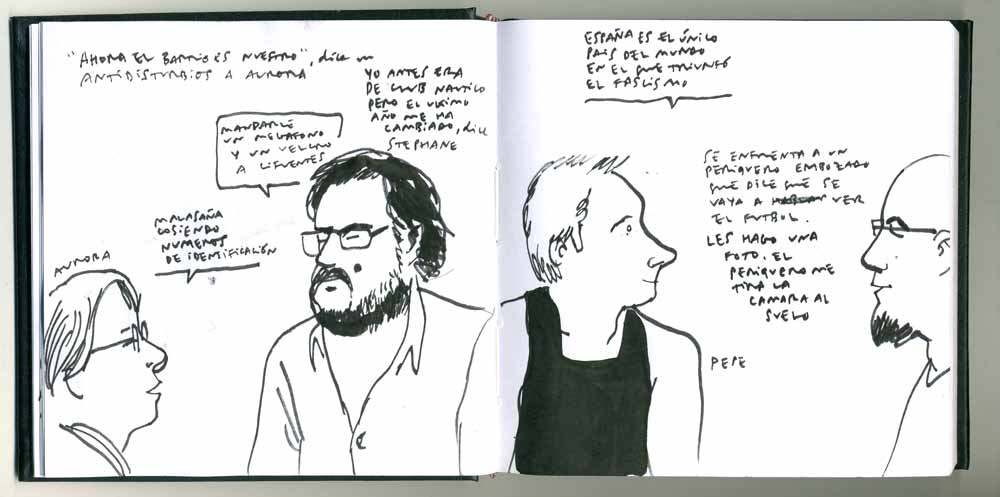 "AHORA EL BARRIO ES NUESTRO", dice un
ANTIDISTURBIOS A AURORA
YO ANTES ERA
DE CLUB NAUTICO
PERO EL ULTIMO
AÑO ME HA
CAMBIADO, dice
STEPHANE
MANDARLE
UN MEGAFONO
Y UN VELCRO
A CIFUENTES
MALASAÑA
COSIENDO
NUMEROS
DE IDENTIFICACIÓN
AURORA
ESPAÑA ES EL ÚNICO
PAIS DEL MUNDO
EN EL QUE TRIUNFÓ
EL FASCISMO
SE ENFRENTA A UN
PERIQUERO EMBOZADO
QUE DICE QUE SE
VAYA A VER
EL FUTBOL.
LES HAGO UNA
FOTO. EL
PERIQUERO ME
TIRA LA
CAMARA AL
SUELO
PEPE